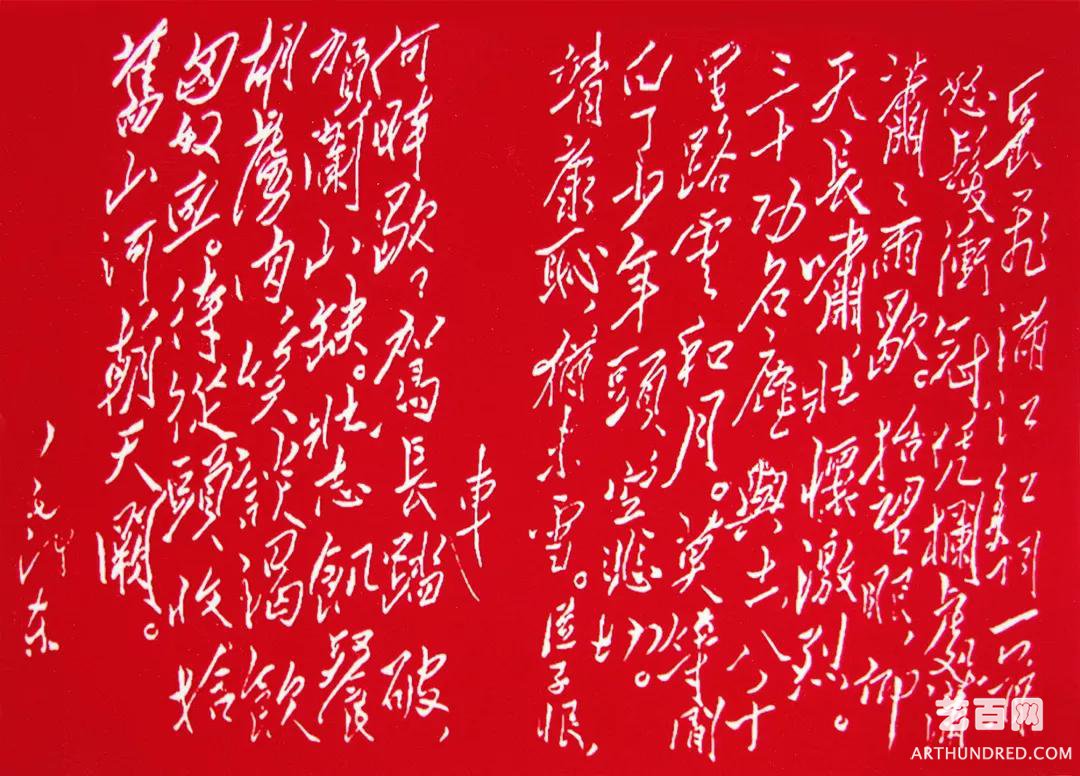 岳飛满江红詞一首
怒髮衝冠凭欄處瀟
瀟々雨歇。抬望眼、仰
天長嘯壯懷激烈。
三十功名塵與土八千
里路雲和月。莫等閒
白了少年頭、空悲切。
靖康恥、猶未雪。臣子恨、
車
何時歇、駕長踏破、
賀蘭山缺。壯志飢餐
胡虜肉笑談渴飲
匈奴血。待從頭收拾
舊山河朝天闕。
毛澤东
艺百网
ARTHUNDRED.COM